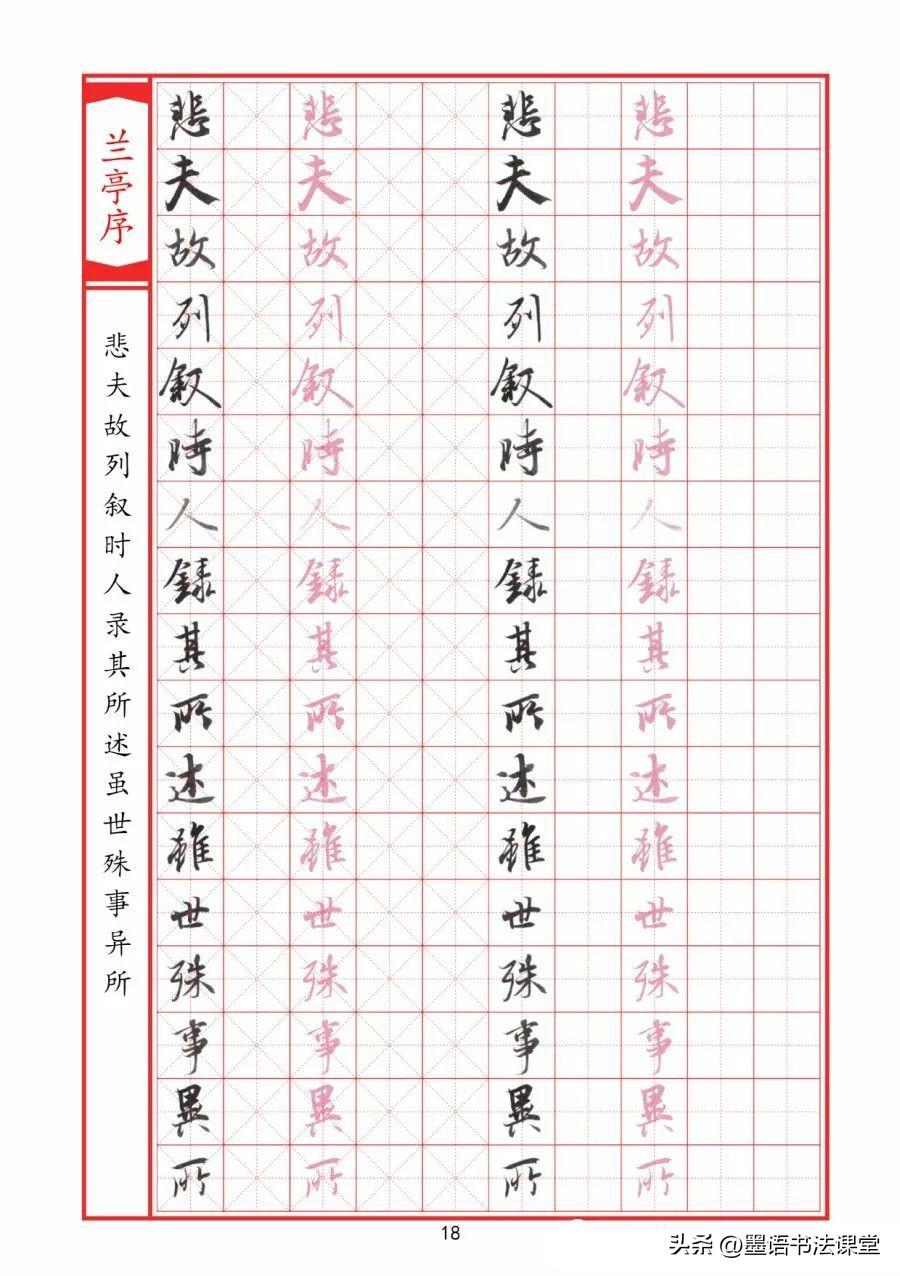 兰亭序
悲夫故列叙时人录其所述虽世殊事异所
悲 悲 悲 悲
夫 夫 夫 夫
故 故 故 故
列 列 列 列
叙 叙 叙 叙
時 時 時 時
人 人 人 人
録 録 録 録
其 其 其 其
所 所 所 所
述 述 述 述
雖 雖 雖 雖
世 世 世 世
殊 殊 殊 殊
事 事 事 事
異 異 異 異
所 所 所 所
18
头条 @墨语书法课堂